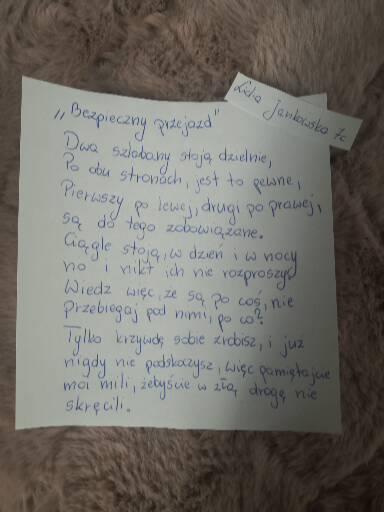 Lidia Jankowska 7c
„Bezpieczny przejazd"
Dwa szlabany stoją dzielnie,
Po obu stronach, jest to pewne,
Pierwszy po lewej, drugi po prawej,
są do tego zobowiązane.
Ciągle stoją, w dzień i w nocy
no i nikt ich nie rozproszy.
Wiedz więc, że są po coś, nie
przebiegaj pod nimi, po co?
Tylko krzywdę sobie zrobisz, i już
nigdy nie podskoczysz, więc pamiętajcie
moi mili, żebyście w złą drogę nie
skręcili.